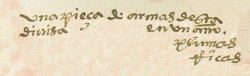 una pieça de armas desta
diuisa en un año.
plumas
ricas